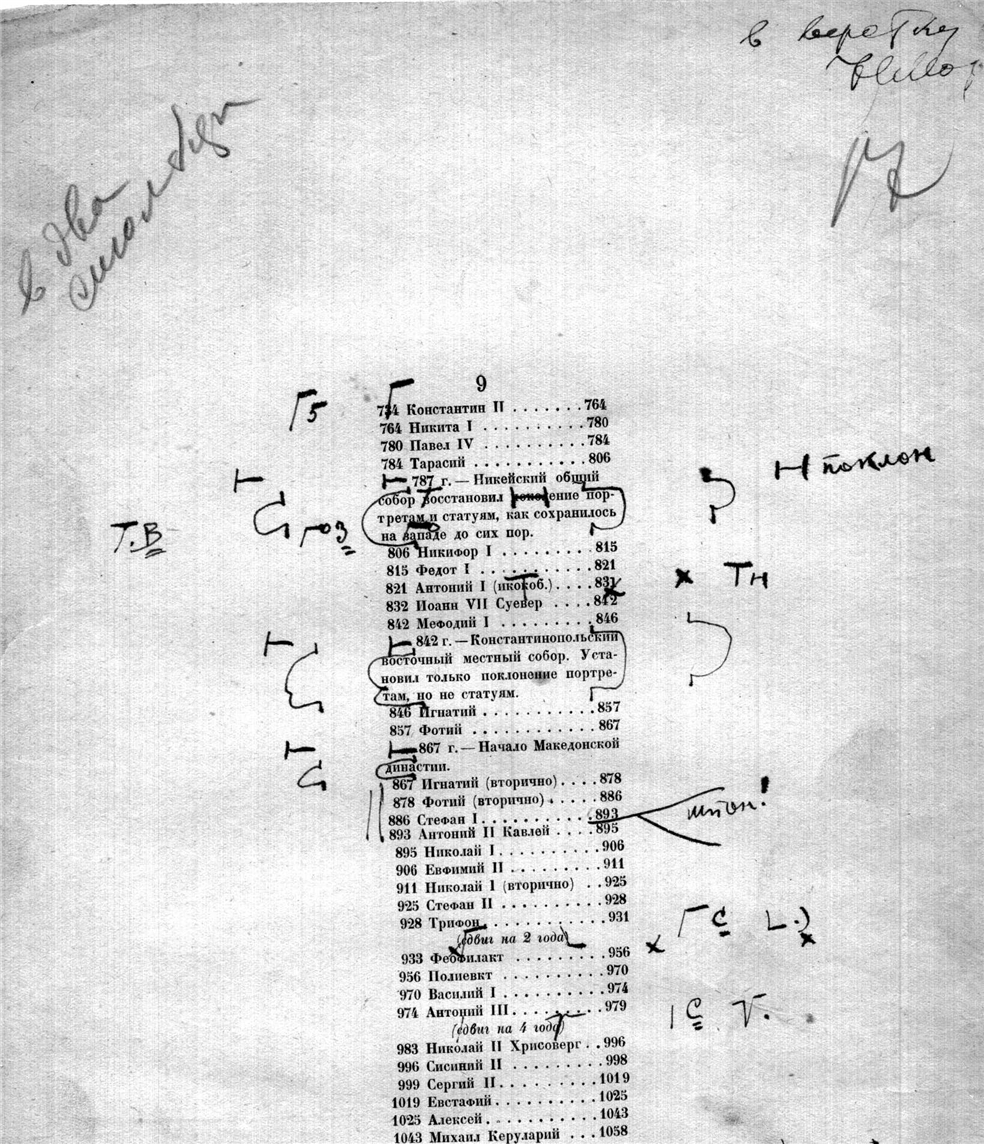 в верстку
в два
столбца
9
734 Константин II . . . . . . . 764
764 Никита I . . . . . . . . . . 780
780 Павел IV . . . . . . . . . . 784
784 Тарасий . . . . . . . . . . 806
787 г. — Никейский общий
собор восстановил ние пор-
третам и статуям, как сохранилось
на западе до сих пор.
806 Никифор I . . . . . . . . . 815
815 Федот I . . . . . . . . . . . 821
821 Антоний I (икокоб.) . . . . 831
832 Иоанн VII Суевер . . . . 842
842 Мефодий I . . . . . . . . . 846
842 г. — Константинопольский
восточный местный собор. Уста-
новил только поклонение портре-
там, но не статуям.
846 Игнатий . . . . . . . . . . . 857
857 Фотий . . . . . . . . . . . . 867
867 г. — Начало Македонской
династии.
867 Игнатий (вторично) . . . . 878
878 Фотий (вторично) . . . . . 886
886 Стефан I . . . . . . . . . . 893
893 Антоний II Кавлей . . . . 895
895 Николай I . . . . . . . . . . 906
906 Евфимий II . . . . . . . . . 911
911 Николай I (вторично) . . 925
925 Стефан II . . . . . . . . . . 928
928 Трифон . . . . . . . . . . . 931
(сдвиг на 2 года)
933 Феофилакт . . . . . . . . . 956
956 Полиевкт . . . . . . . . . . 970
970 Василий I . . . . . . . . . . 974
974 Антоний III . . . . . . . . . 979
(сдвиг на 4 года)
983 Николай II Хрисоверг . . 996
996 Сисиний II . . . . . . . . . 998
999 Сергий II . . . . . . . . . . 1019
1019 Евстафий . . . . . . . . . . 1025
1025 Алексей . . . . . . . . . . . 1043
1043 Михаил Керуларий . . . 1058
5
поклон
Т.В
з
Тн
шпон!
с
с